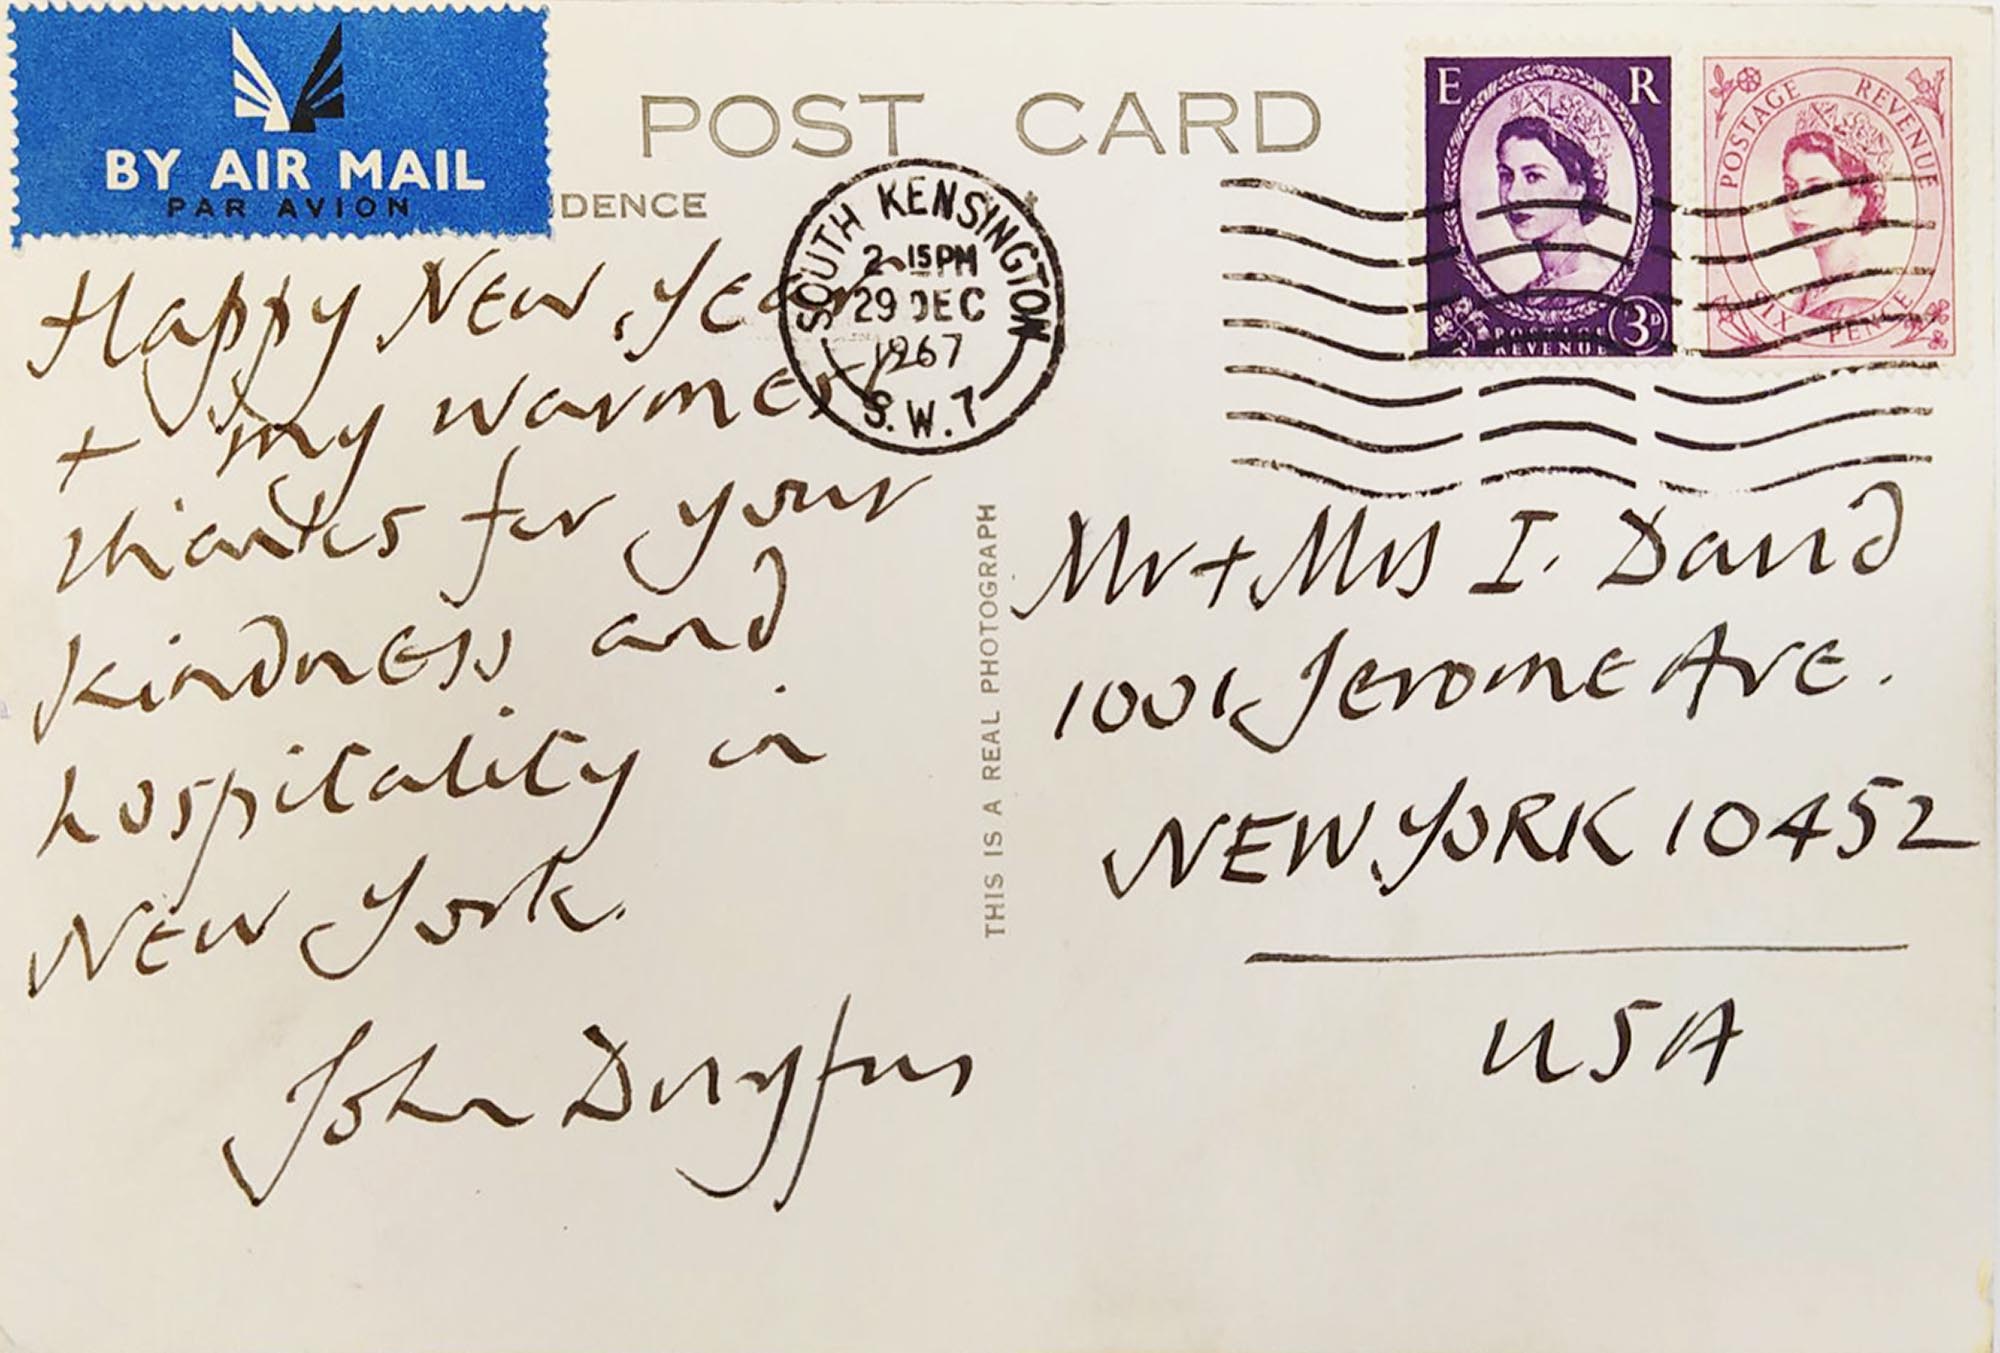 BY AIR MAIL
PAR AVION
POST CARD
DENCE
SOUTH KENSINGTON
2-15PM
29 DEC
1967
S.W.7
E R
POSTAGE
REVENUE
3D
POSTAGE REVENUE
SIX PENCE
Happy New Year
+ my warmest
thanks for your
kindness and
hospitality in
New York.
John Dreyfus
THIS IS A REAL PHOTOGRAPH
Mr + Mrs I. David
1001 Jerome Ave.
NEW YORK 10452
USA